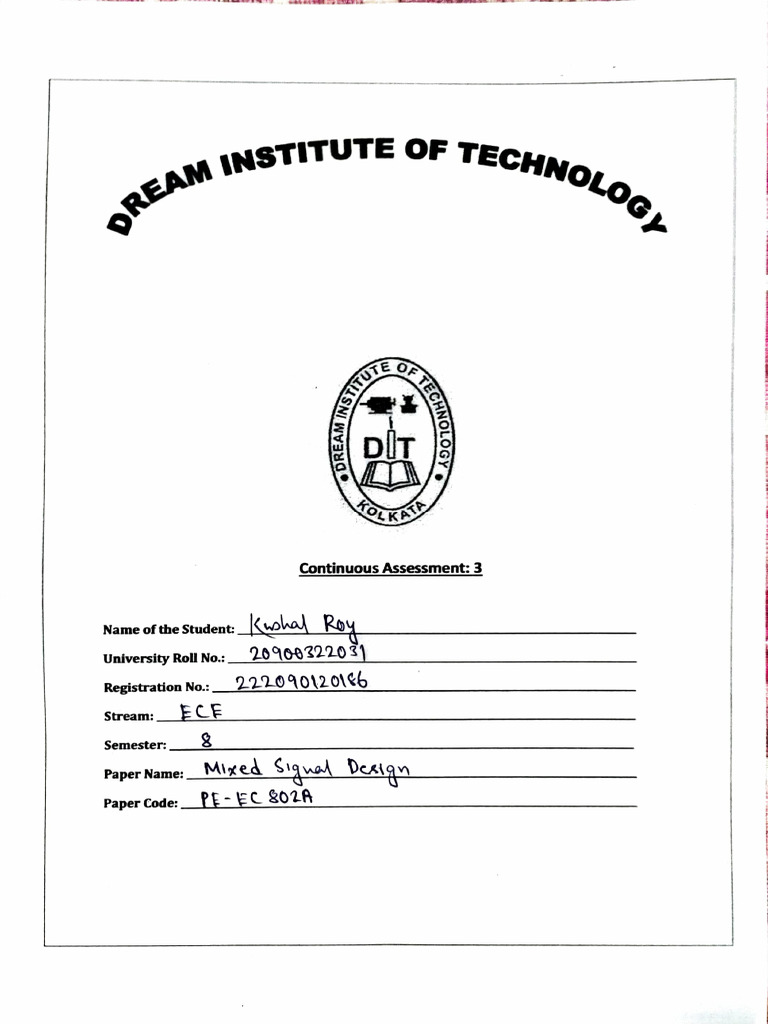 DREAM INSTITUTE OF TECHNOLOGY
DREAM INSTITUTE OF TECHNOLOGY
DIT
KOLKATA
Continuous Assessment: 3
Name of the Student: Kushal Roy
University Roll No.: 20900322031
Registration No.: 222090120186
Stream: ECE
Semester: 8
Paper Name: Mixed Signal Design
Paper Code: PE-EC 802A